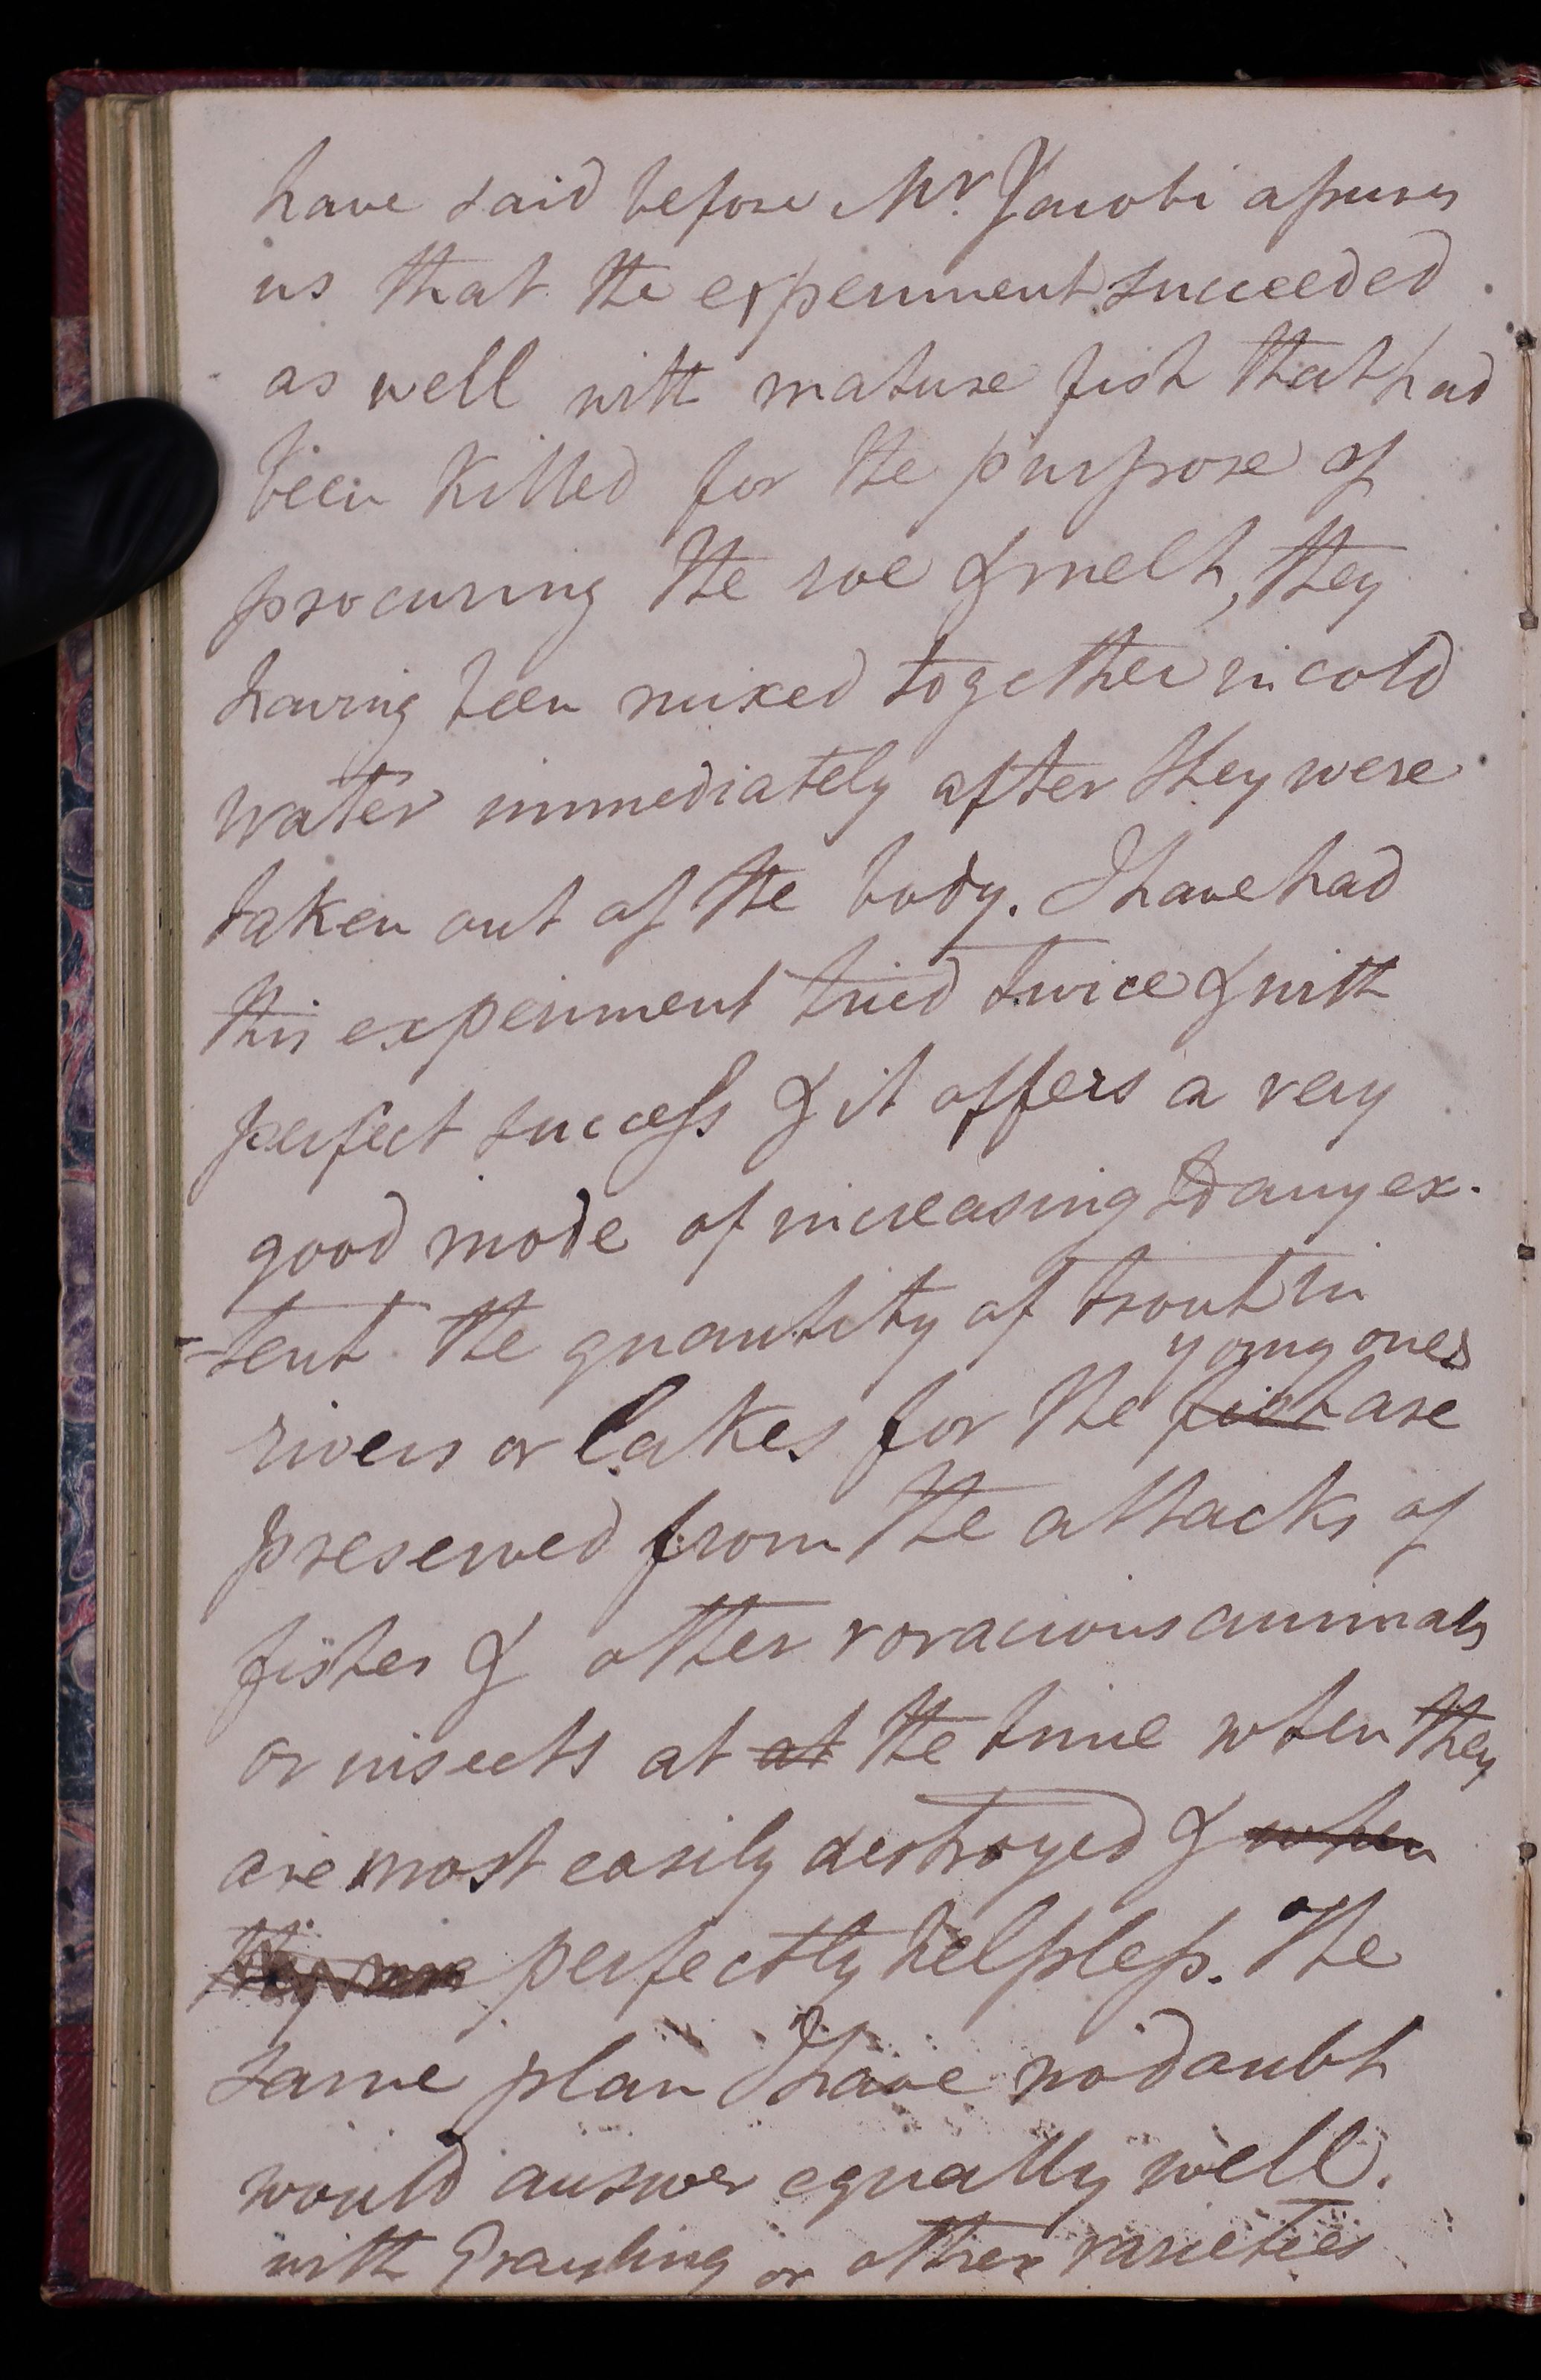 have said before Mr. Jacobi assures
us that the experiment succeeded
as well with mature fish that had
been killed for the purpose of
procuring the roe & melt, they
having been mixed together in cold
water immediately after they were
taken out of the body. I have had
this experiment tried twice & with
perfect success & it offers a very
good mode of increasing to any ex-
-tent the quantity of trout in
young ones
rivers or lakes for the fish are
preserved from the attacks of
fishes & other voracious animals
or insects at at the time when they
are most easily destroyed & when
they are perfectly helpless. The
same plan I have no doubt
would answer equally well.
with Grayling or other varieties